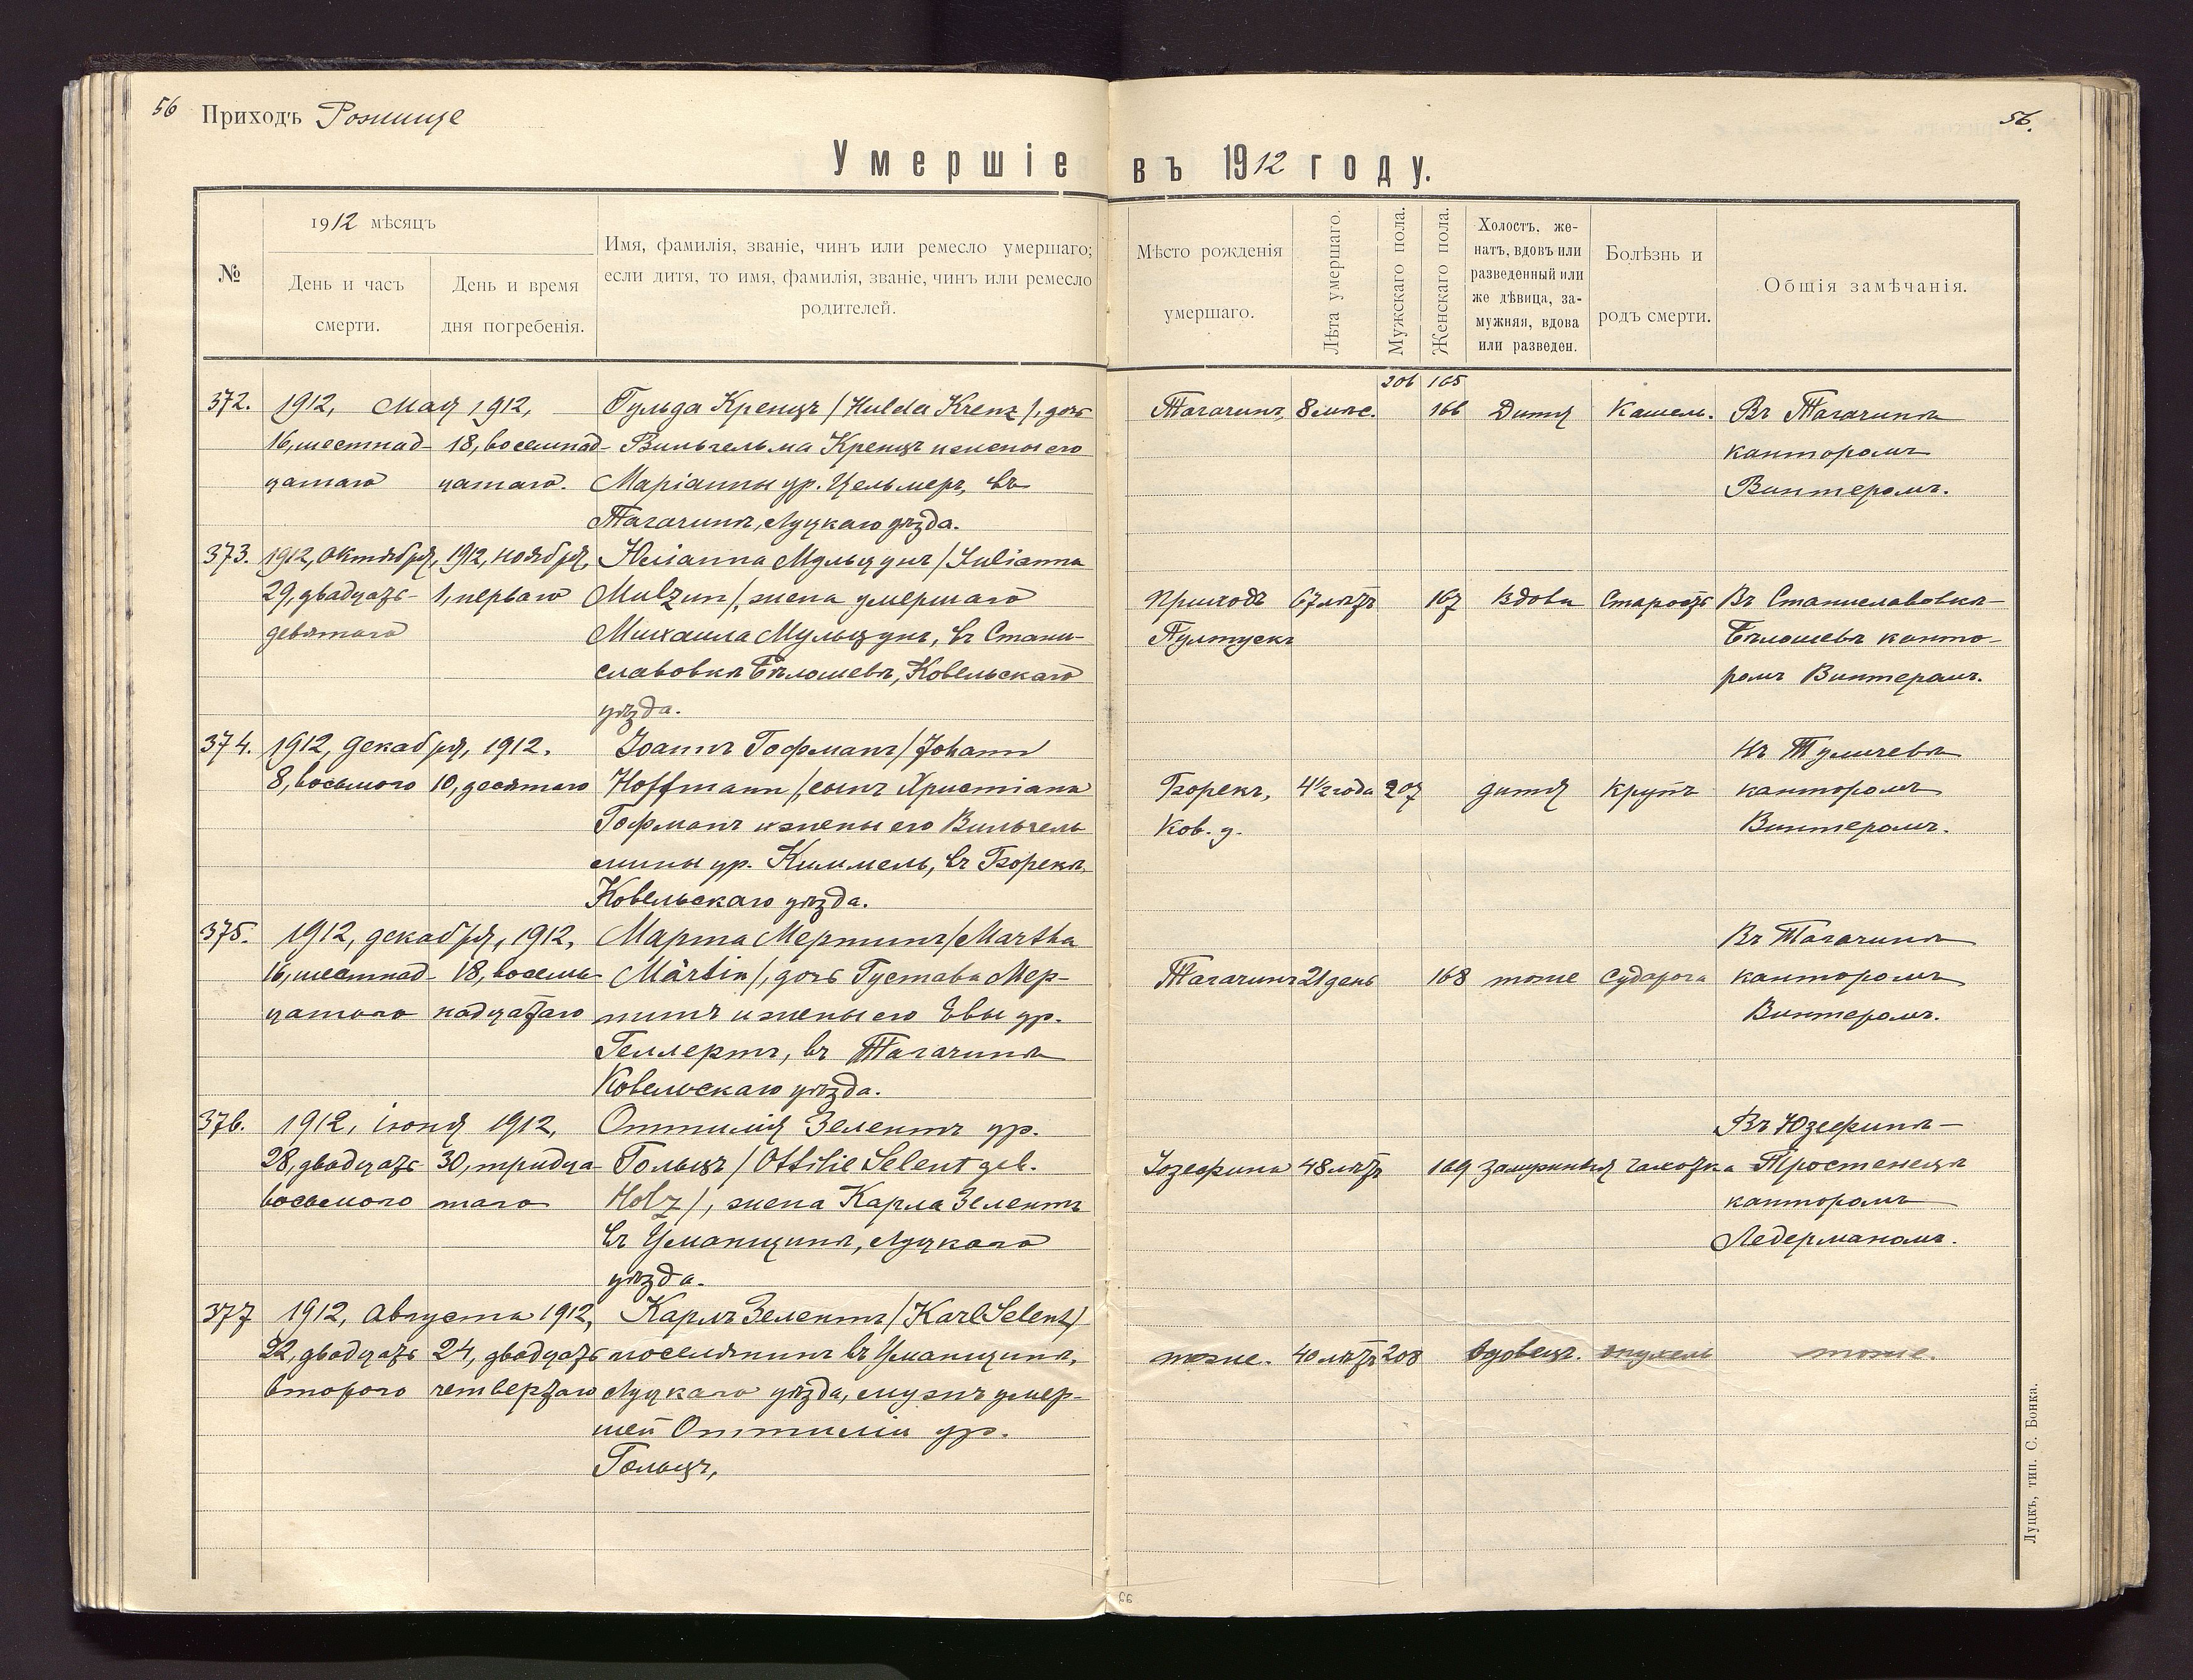 56 Приходъ Рожище
56.
Умершіе въ 1912 году.
№
1912 мѣсяцъ
День и часъ
смерти.
День и время
дня погребенія.
Имя, фамилія, званіе, чинъ или ремесло умершаго;
если дитя, то имя, фамилія, званіе, чинъ или ремесло
родителей.
Мѣсто рожденія
умершаго.
Лѣта умершаго.
Мужскаго пола.
Женскаго пола.
Холостъ, же-
натъ, вдовъ или
разведенный или
же дѣвица, за-
мужняя, вдова
или разведен.
Болѣзнь и
родъ смерти.
Общія замѣчанія.
206 165
372. 1912, Мая 1912, Гульда Кренцъ /Hulda Krenz/, дочь Тагачинъ, 8 мѣс. 166 Дитя Кашель. Въ Тагачинѣ
16, шестнад- 18, восемнад- Вильгельма Кренцъ и жены его канторомъ
цатаго цатаго. Маріанны ур. Цельмеръ, въ Винтеромъ.
Тагачинѣ, Луцкаго уѣзда.
373. 1912, октября, 1912, ноября, Юліанна Мульцунъ /Julianna
29, двадцать 1, перваго Mulzun/, жена умершаго Приходъ 67 лѣтъ 167 вдова Старость Въ Станиславовкѣ-
девятаго Михаила Мульцунъ, въ Стани- Пултускъ Бѣлошевѣ канто-
славовкѣ Бѣлошевѣ, Ковельскаго ромъ Винтеромъ.
уѣзда.
374. 1912, декабря, 1912. Іоаннъ Гофманъ /Johann Въ Туличевѣ
8, восьмого 10, десятаго Hoffmann/, сынъ Христіана Борекъ, 4½ года 207 дитя крупъ канторомъ
Гофманъ и жены его Вильгель Ков. у. Винтеромъ.
мины ур. Киммель, въ Борекѣ,
Ковельскаго уѣзда.
375. 1912, декабря, 1912, Марта Мертинъ /Martha Въ Тагачинѣ
16, шестнад- 18, восемь- Märtin/, дочь Густава Мер- Тагачинъ 21 день 168 тоже Судорога канторомъ
цатаго надцатаго тинъ и жены его Евы ур. Винтеромъ.
Геллертъ, въ Тагачинѣ
Ковельскаго уѣзда.
376. 1912, іюня 1912, Оттилія Зелентъ ур. Въ Юзефинѣ-
28, двадцать 30, тридца- Гольцъ /Ottilie Selent geb. Іозефина 48 лѣтъ 169 замужняя чахотка Тростенецъ
восьмого таго Holz/, жена Карла Зелентъ канторомъ
въ Уманщинѣ, Луцкаго Ледерманомъ.
уѣзда.
377 1912, Августа 1912, Карлъ Зелентъ /Karl Selent/
22, двадцать 24, двадцать поселянинъ въ Уманщинѣ, тоже. 40 лѣтъ 208 вдовецъ. опухель тоже.
второго четвертаго Луцкаго уѣзда, мужъ умер-
шей Оттиліи ур.
Гольцъ,
Луцкъ, тип. С. Бонка.
66